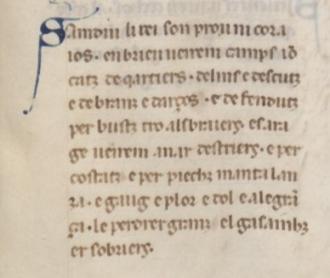 Samdui li rei son prou ni cora
ios. en brieu ueirem camps iō
catz de qartiers. delms e descutz
e de branz e darços. e de fendutz
per bustz tro als braiers. es ara
ge ueirem anar destriers. e per
costatz e per piechz manta lan
za. e gaug e plor e dol e alegrā
ça. le perdrer granz el gasainhz
er sobriers.